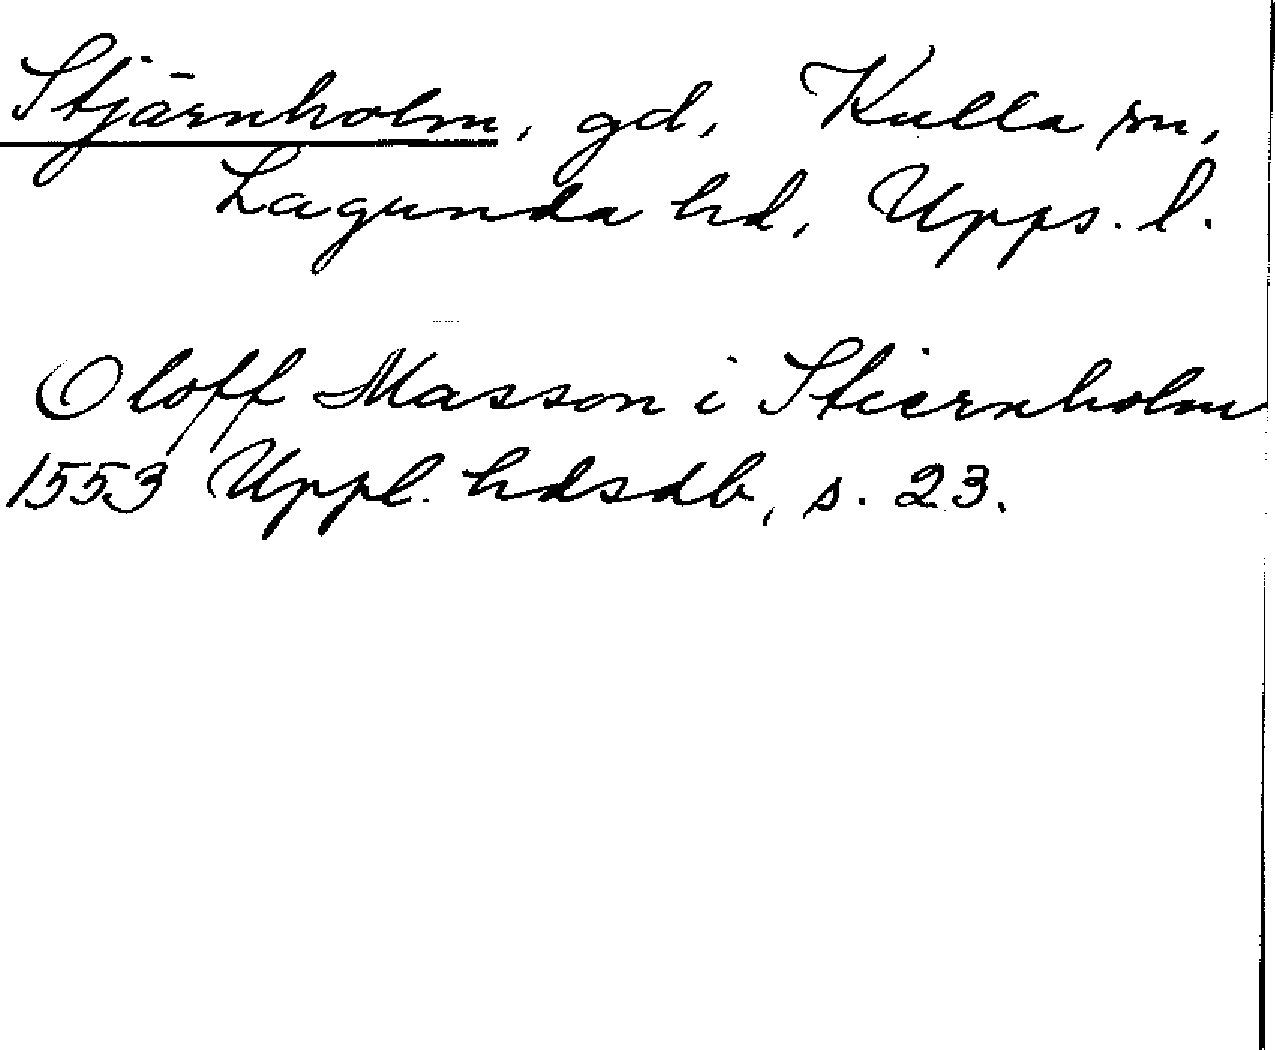 Stjärnholm, gd, Kulla sn,
Lagunda hd, Upps. l.
Oloff Masson i Stiernholm
1553 Uppl. hdsdb, s. 23.